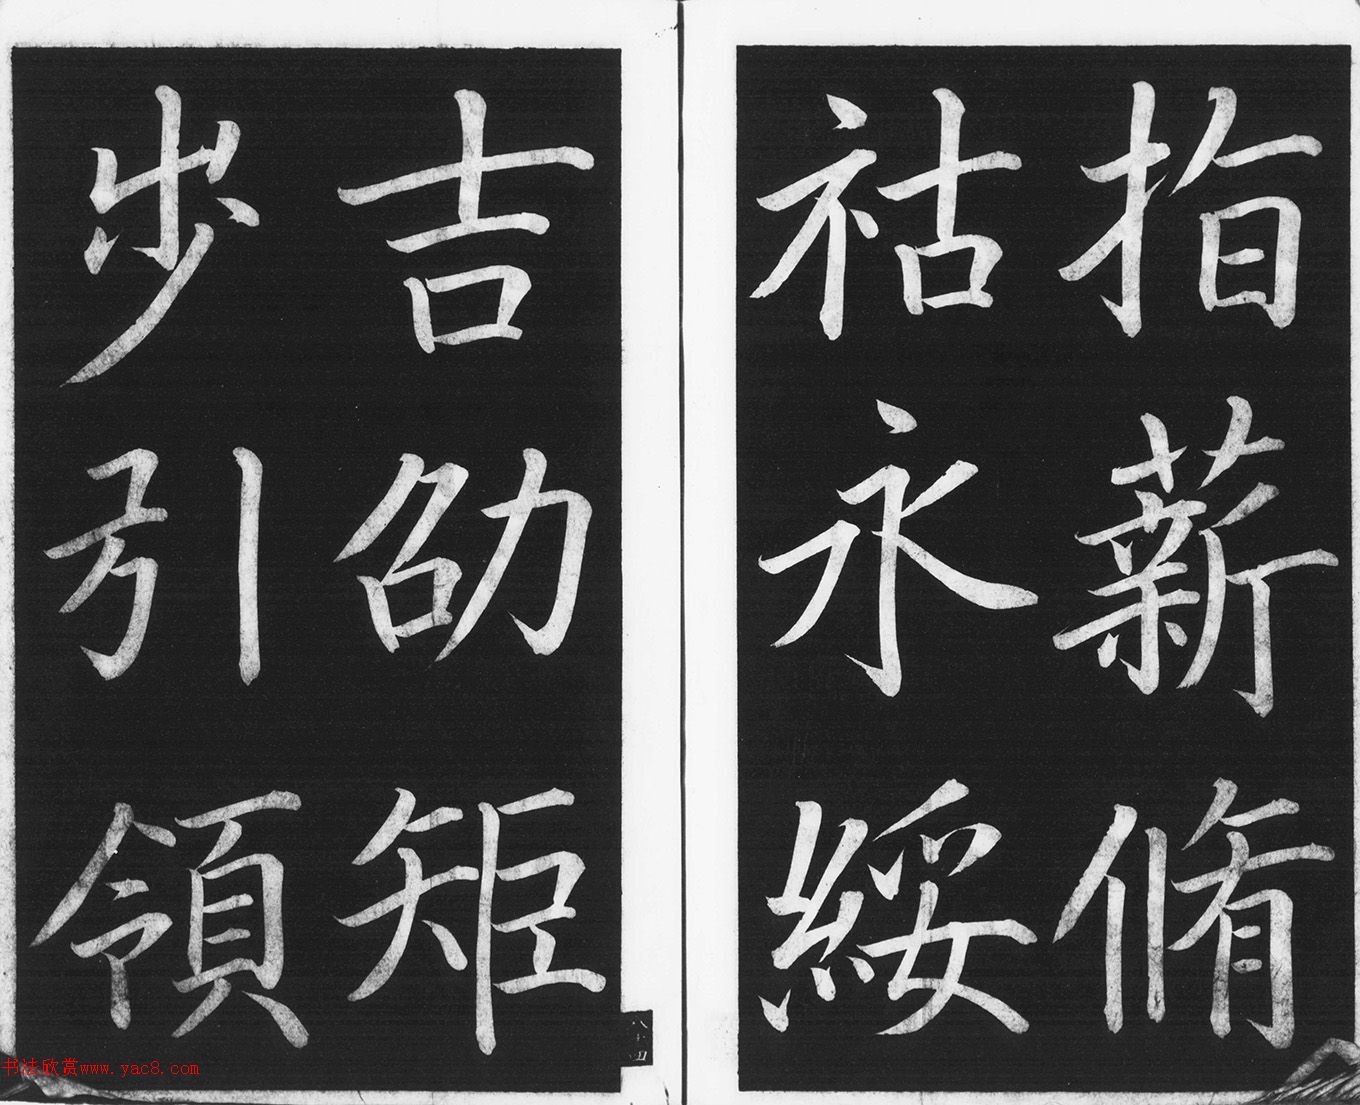 指薪脩
祜永綏
吉劭矩
步引領
书法欣赏www.yac8.com